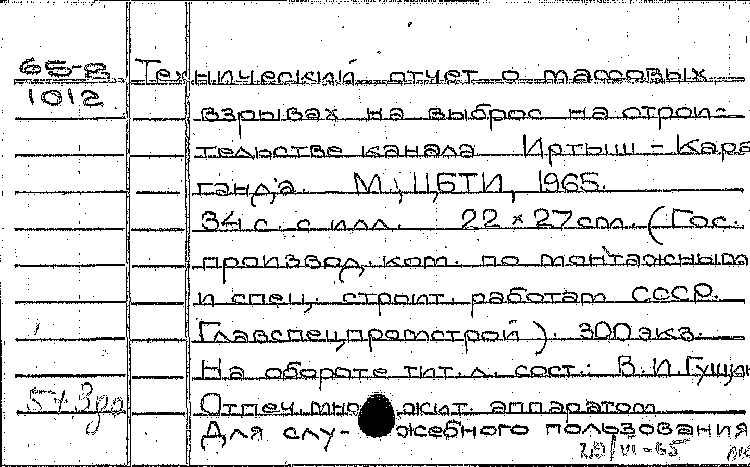 65-8
1012
Технический отчет о массовых
взрывах на выброс на строи-
тельстве канала Иртыш - Кара
ганда. М., ЦБТИ, 1965.
34 с. с илл. 22 × 27 cm. (Гос.
производ. ком. по монтажным
и спец. строит. работам СССР.
Главспецпромстрой). 300 экз.
На обороте тит. л. сост.: В.И.Гущин
Отпеч. множит. аппаратом
Для слу- жебного пользования